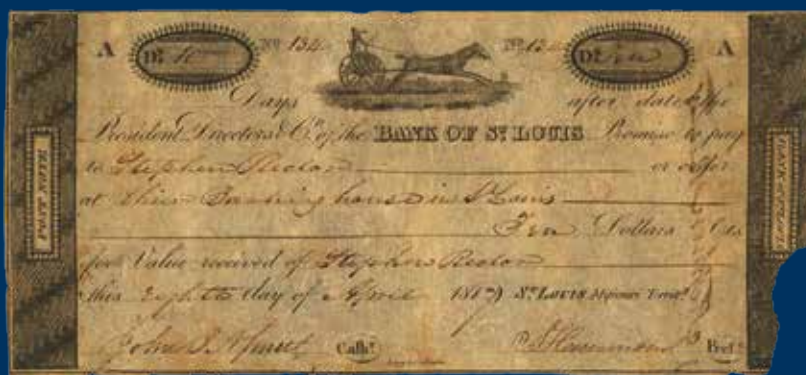 A Ds. 10 No 134 No 134 Ds. Ten A
Days after date the
President Directors & Co. of the BANK OF St. LOUIS Promise to pay
to Stephen or order
at their Banking house in St Louis
Ten Dollars Cts
for Value received of Stephen
this eighth day of April 1817 St. LOUIS Missouri Terry.
John Cashr. Prest.
POST NOTE